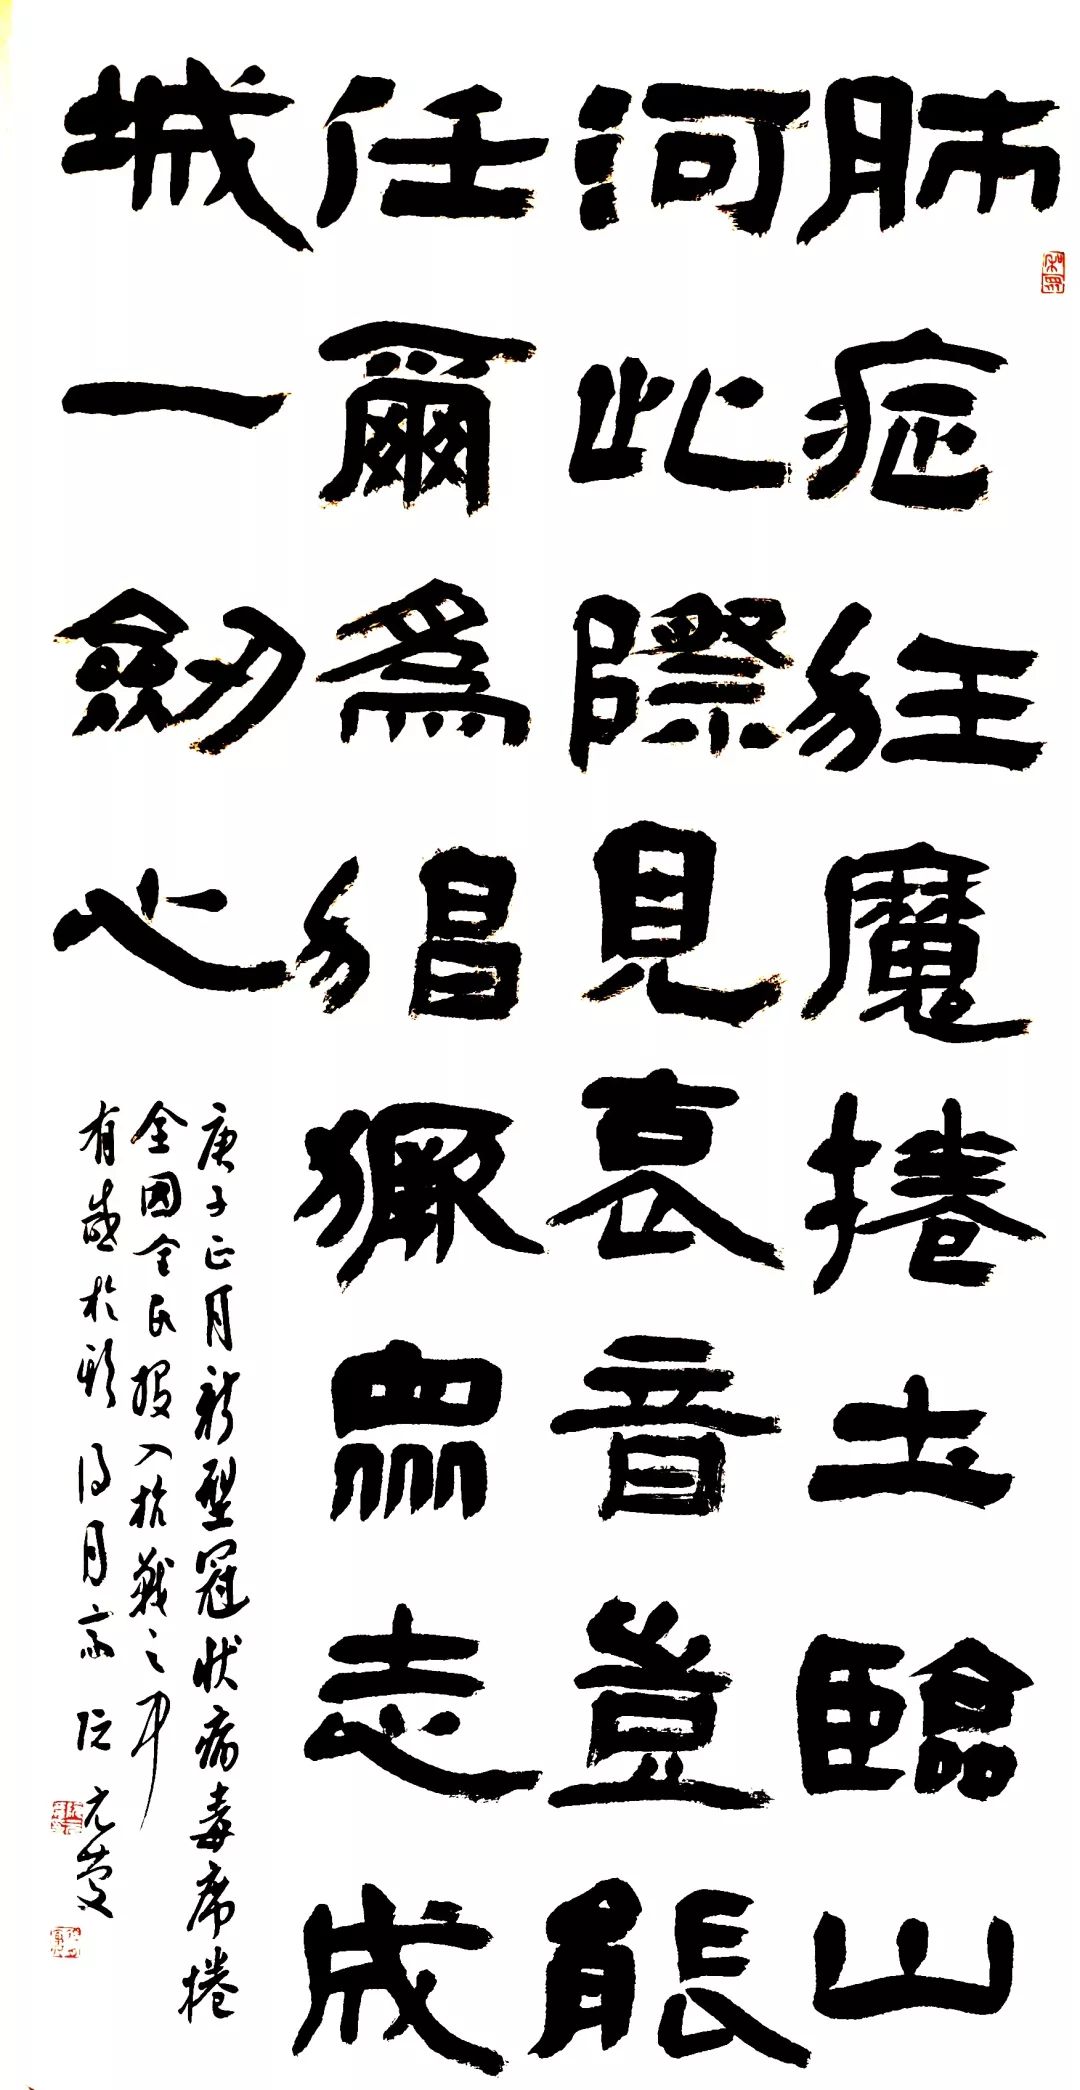 肺症狂魔捲土臨山
河此際見哀音豈能
任爾爲猖獗眾志成
城一劍心
庚子正月新型冠狀病毒席捲
全國全民投入抗戰之中
有感於斯得月斋